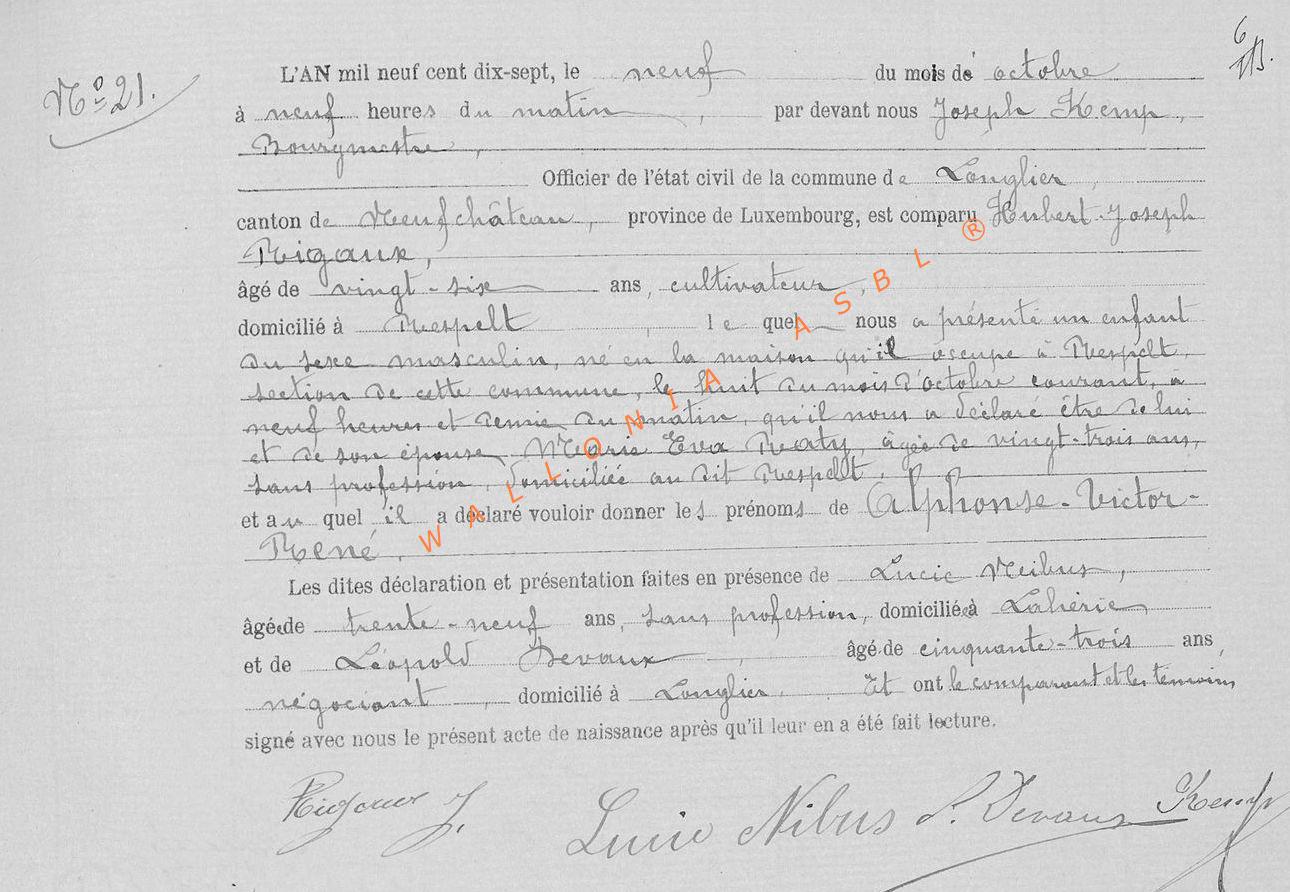 6
N° 21.
L'AN mil neuf cent dix-sept, le neuf du mois de octobre
à neuf heures du matin, par devant nous Joseph Kemp,
Bourgmestre,
Officier de l'état civil de la commune de Longlier,
canton de Neufchâteau, province de Luxembourg, est comparu Hubert-Joseph
Rigaux,
âgé de vingt-six ans, cultivateur,
domicilié à Respelt, le quel nous a présenté un enfant
du sexe masculin, né en la maison qu'il occupe à Respelt,
section de cette commune, le huit du mois d'octobre courant, à
neuf heures et demie du matin, qu'il nous a déclaré être de lui
et de son épouse Marie Eva Reaty, âgée de vingt-trois ans,
sans profession, domiciliée au dit Respelt,
et au quel il a déclaré vouloir donner les prénoms de Alphonse-Victor-
René.
Les dites déclaration et présentation faites en présence de Lucie Neibus,
âgée de trente-neuf ans, sans profession, domiciliée à Lahérie
et de Léopold Devaux, âgé de cinquante-trois ans,
négociant, domicilié à Longlier. Et ont le comparant et les témoins
signé avec nous le présent acte de naissance après qu'il leur en a été fait lecture.
Rigaux J. Lucie Nibus L. Devaux Kemp
WALLONIA ASBL ®